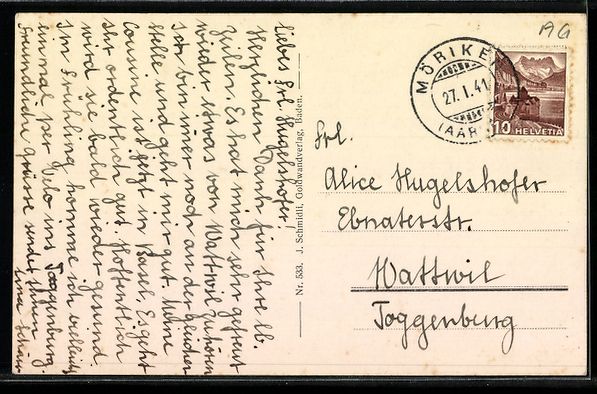 Liebes Frl. Hugelshofer!
Herzlichen Dank für Ihre lb.
Zeilen. Es hat mich sehr gefreut
wieder etwas von Wattwil zu hören.
Ich bin immer noch an der gleichen
Stelle und geht mir gut. Meine
Cousine ist jetzt in Basel. Es geht
ihr ordentlich gut. Hoffentlich
wird sie bald wieder gesund.
Im Frühling komme ich vielleicht
einmal per Velo ins Toggenburg.
Freundliche Grüsse sendet Ihnen
Nr. 533. J. Schmidli, Goldwandverlag, Baden.
AG
MÖRIKE
27. I. 41
(AAR
10 HELVETIA
Frl.
Alice Hugelshofer
Ebnaterstr.
Wattwil
Toggenburg